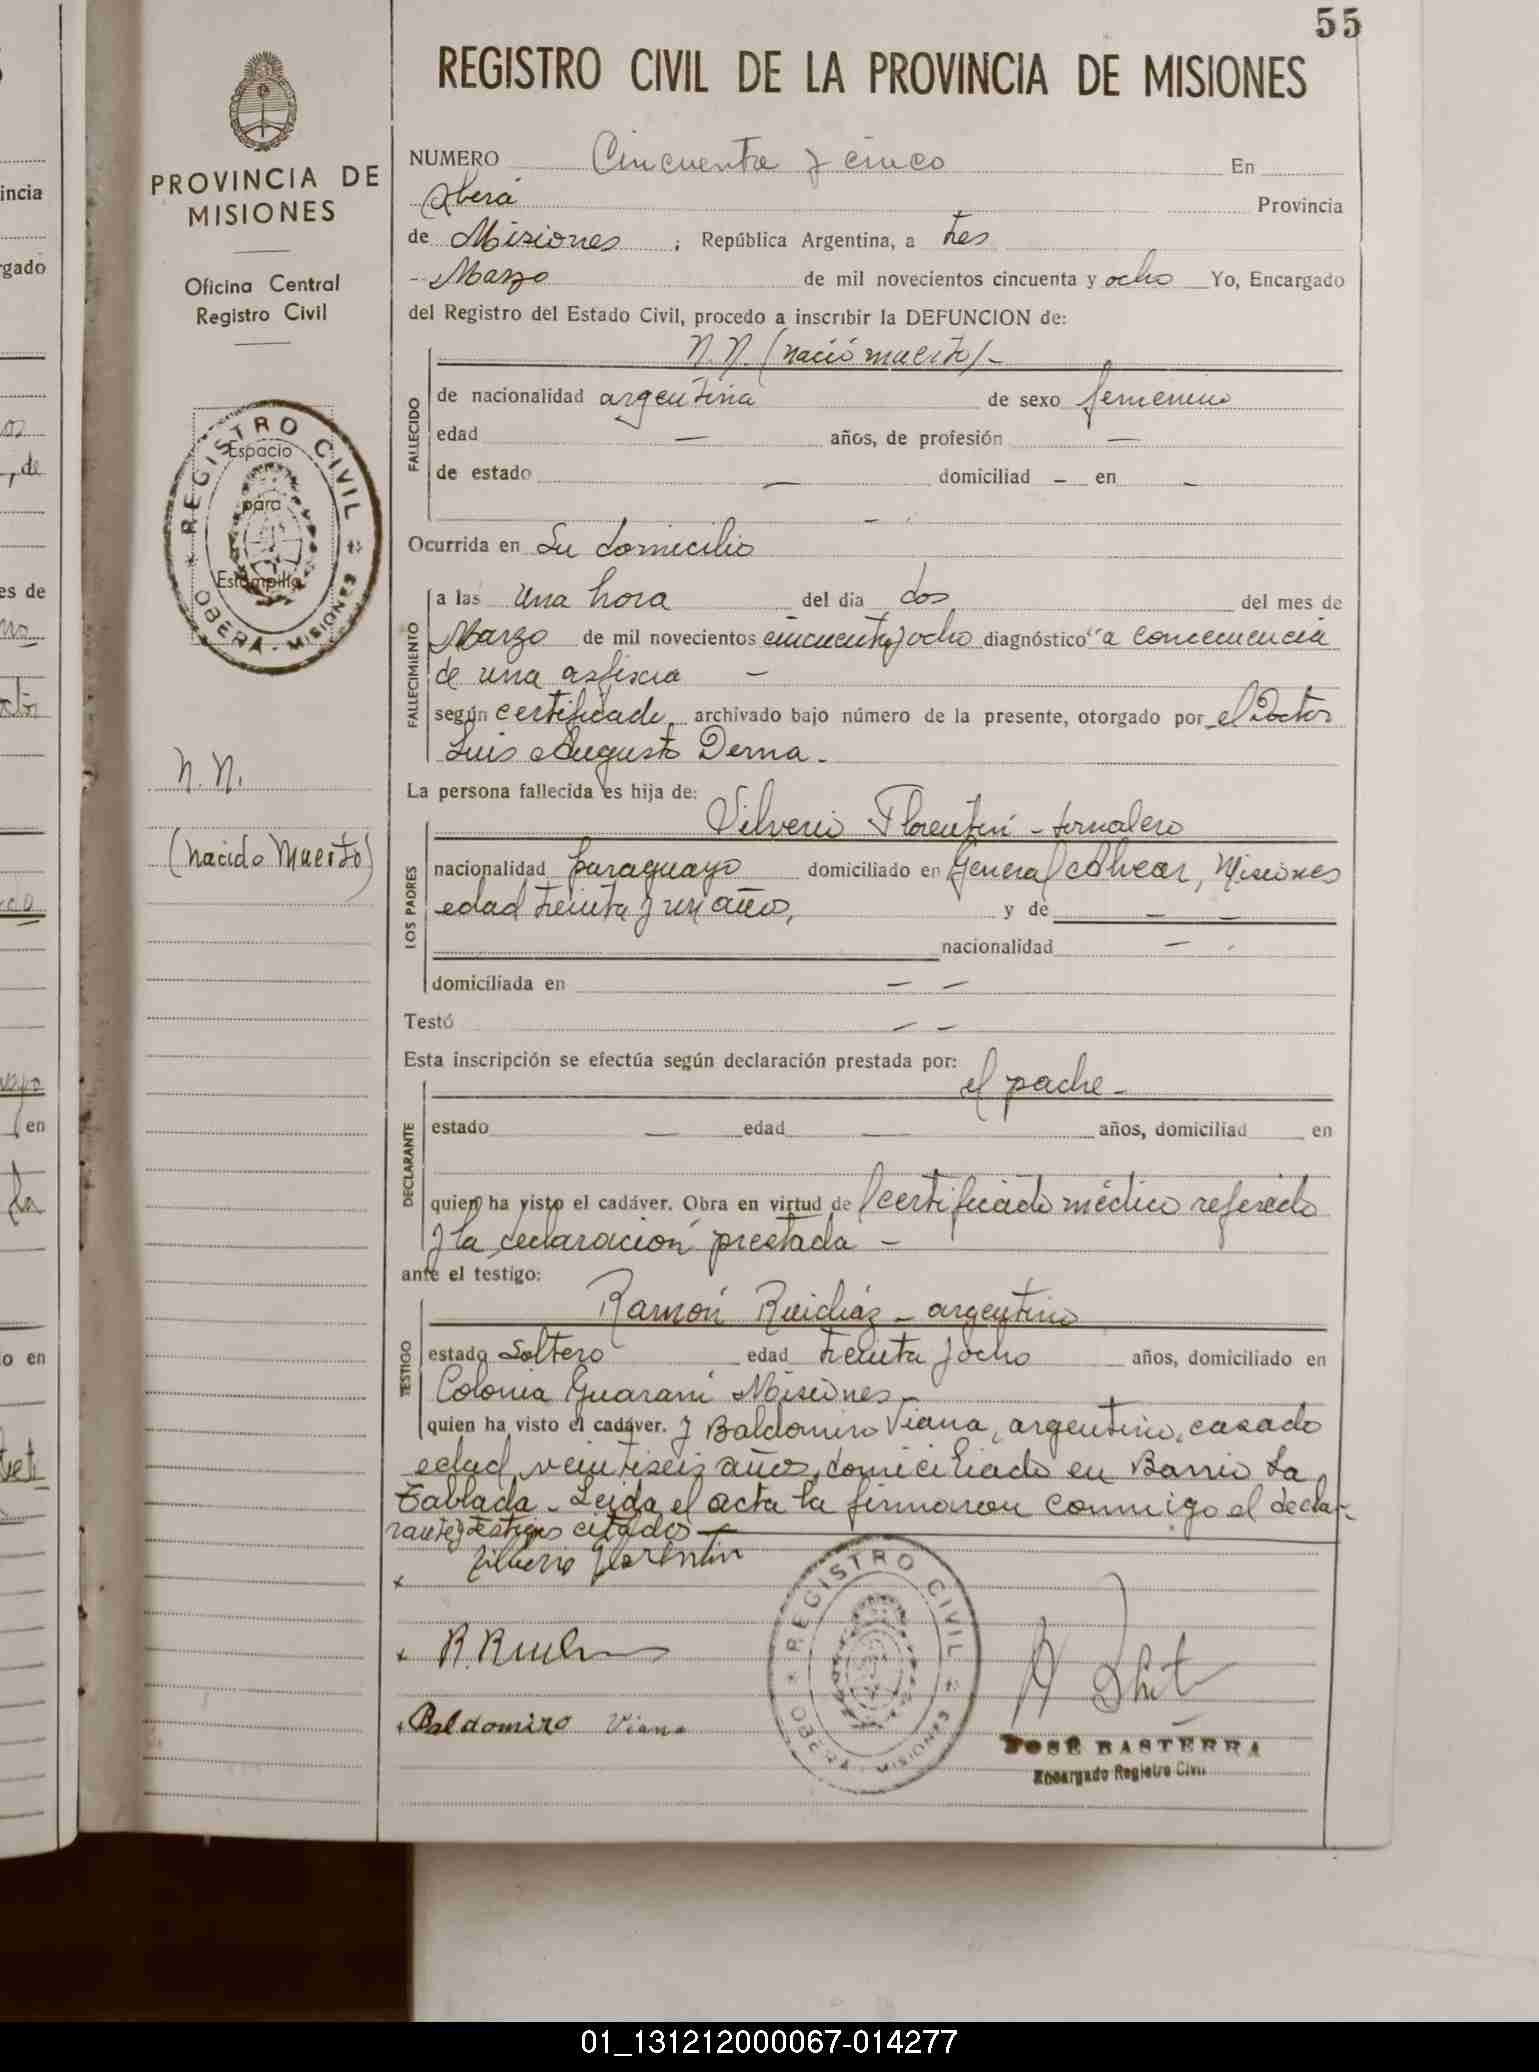 55
REGISTRO CIVIL DE LA PROVINCIA DE MISIONES
PROVINCIA DE
MISIONES
Oficina Central
Registro Civil
REGISTRO CIVIL
OBERÁ - MISIONES
Espacio
para
Estampilla
N. N.
(nacido Muerto)
NUMERO Cincuenta y cinco En
Oberá Provincia
de Misiones ; República Argentina, a tres
Marzo de mil novecientos cincuenta y ocho Yo, Encargado
del Registro del Estado Civil, procedo a inscribir la DEFUNCION de:
N. N. (nació muerto) -
FALLECIDO
de nacionalidad argentina de sexo femenino
edad — años, de profesión —
de estado — domiciliad - en -
Ocurrida en Su domicilio
FALLECIMIENTO
a las una hora del día dos del mes de
Marzo de mil novecientos cincuenta y ocho diagnóstico "a concecuencia
de una asfixia —
según certificado archivado bajo número de la presente, otorgado por el Doctor
Luis Augusto Derna.
La persona fallecida es hija de:
LOS PADRES
Silverio Florentin - jornalero
nacionalidad paraguayo domiciliado en General Alvear, Misiones
edad treinta y un años, y de — —
nacionalidad —
domiciliada en — —
Testó — —
Esta inscripción se efectúa según declaración prestada por:
el padre -
DECLARANTE
estado — edad — años, domiciliad en
quien ha visto el cadáver. Obra en virtud de l certificado médico referido
y la declaración prestada -
ante el testigo:
TESTIGO
Ramón Ruidiaz - argentino
estado Soltero edad treinta y ocho años, domiciliado en
Colonia Guaraní Misiones -
quien ha visto el cadáver. y Baldomiro Viana, argentino, casado
edad veintiseis años, domiciliado en Barrio La
Tablada - Leida el acta la firmaron conmigo el decla-
rante y testigos citados —
x Silverio Florentin
x R. Ruidiaz
x Baldomiro Viana
REGISTRO CIVIL
OBERÁ - MISIONES
JOSÉ BASTERRA
Encargado Registro Civil
incia
gado
es de
en
o en
01_131212000067-014277